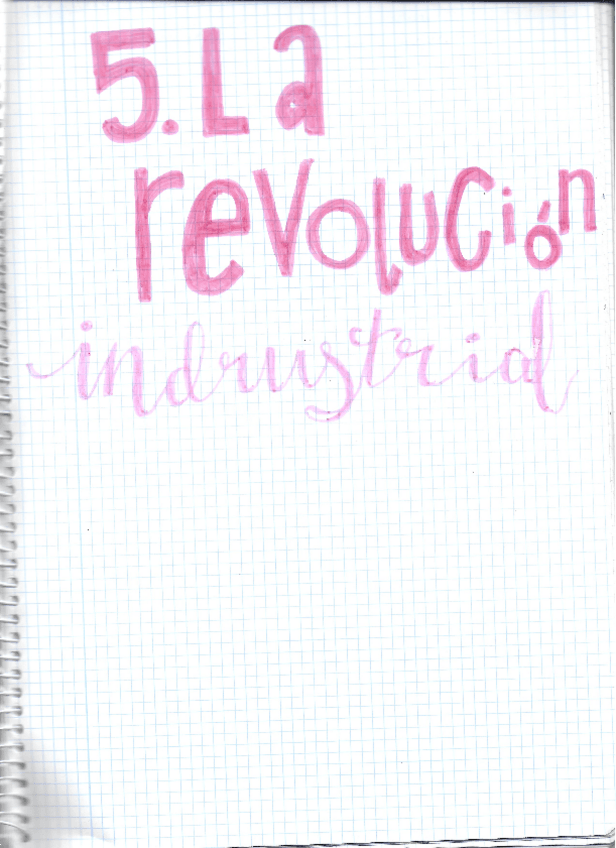 5. La
revolución
indrustrial